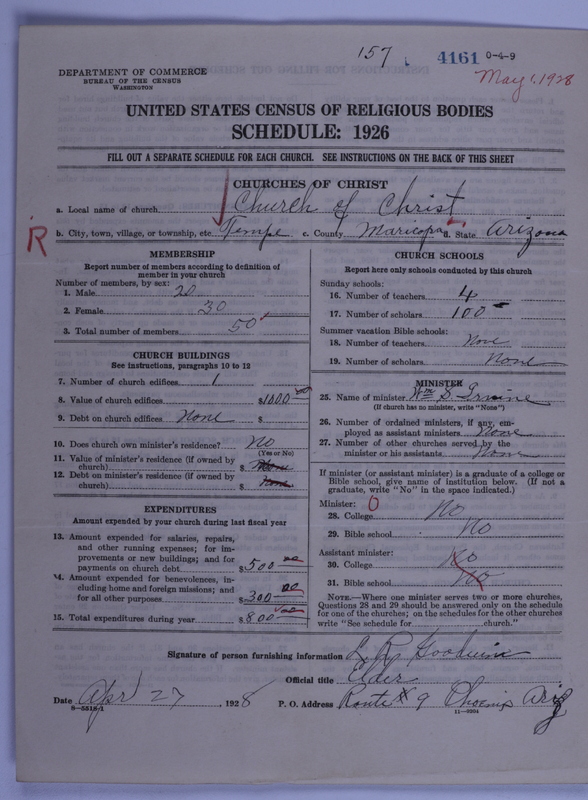 157 4161 0-4-9
May 1, 1928
DEPARTMENT OF COMMERCE
BUREAU OF THE CENSUS
WASHINGTON
UNITED STATES CENSUS OF RELIGIOUS BODIES
SCHEDULE: 1926
FILL OUT A SEPARATE SCHEDULE FOR EACH CHURCH. SEE INSTRUCTIONS ON THE BACK OF THIS SHEET
CHURCHES OF CHRIST
a. Local name of church Church of Christ
R b. City, town, village, or township, etc. Tempe c. County Maricopa d. State Arizona
MEMBERSHIP
Report number of members according to definition of
member in your church
Number of members, by sex:
1. Male 20
2. Female 30
3. Total number of members 50
CHURCH BUILDINGS
See instructions, paragraphs 10 to 12
7. Number of church edifices 1
8. Value of church edifices $1000 00
9. Debt on church edifices None $
10. Does church own minister's residence? No
(Yes or No)
11. Value of minister's residence (if owned by
church) $ None
12. Debt on minister's residence (if owned by
church) $ None
EXPENDITURES
Amount expended by your church during last fiscal year
13. Amount expended for salaries, repairs,
and other running expenses; for im-
provements or new buildings; and for
payments on church debt $500 00
14. Amount expended for benevolences, in-
cluding home and foreign missions; and
for all other purposes $300 00
15. Total expenditures during year $800 00
CHURCH SCHOOLS
Report here only schools conducted by this church
Sunday schools:
16. Number of teachers 4
17. Number of scholars 100
Summer vacation Bible schools:
18. Number of teachers None
19. Number of scholars None
MINISTER
25. Name of minister Wm S. Irvine
(If church has no minister, write "None")
26. Number of ordained ministers, if any, em-
ployed as assistant ministers None
27. Number of other churches served by the
minister or his assistants None
If minister (or assistant minister) is a graduate of a college or
Bible school, give name of institution below. (If not a
graduate, write "No" in the space indicated.)
Minister: 0
28. College No
29. Bible school No
Assistant minister:
30. College No
31. Bible school No
NOTE.—Where one minister serves two or more churches,
Questions 28 and 29 should be answered only on the schedule
for one of the churches; on the schedules for the other churches
write "See schedule for church."
Signature of person furnishing information L R Goodwin
Official title Elder
Date Apr 27, 1928 P. O. Address Route # 9 Phoenix Ariz
8—5518-1 11—9304